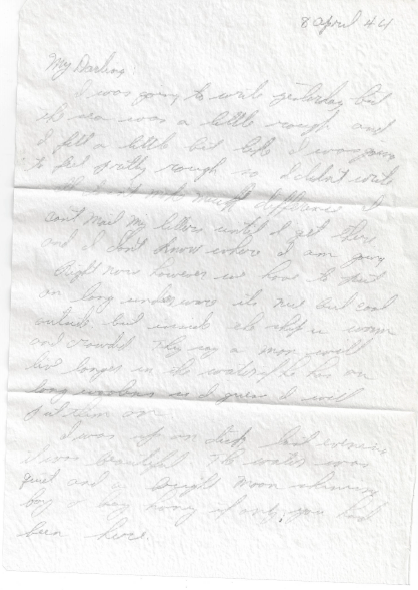 8 April 44
My Darling
I was going to write yesterday but
the sea was a little rough and
I felt a little bit like I was going
to feel pretty rough so I didn't write
it don't make much difference I
cant mail my letters until I get there
and I don't know where I am going
Right now however we have to put
on long underwear its nice and cool
outside but inside the ship is warm
and crowded They say a man will
live longer in the water if he has on
long so I guess I will
put them on
I was up on deck last evening
it was beautiful The water was
quiet and a bright moon shining
boy o boy honey if only you had
been here.